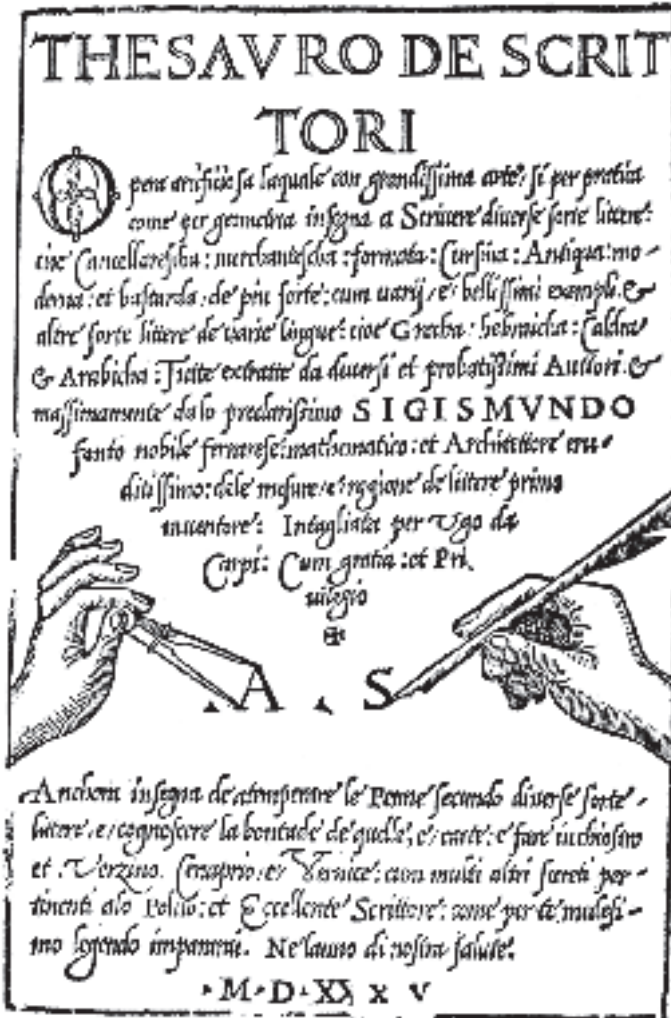 THESAVRO DE SCRIT
TORI
Opera artificiosa laquale con grandissima arte: si per pratica
come per geometria insegna a Scriuere diuerse sorte littere:
cioe Cancellarescha: merchantescha: formata: Cursiua: Antiqua: mo-
derna: et bastarda: de piu sorte: cum uarij, e, bellissimi exempli. &
altre sorte littere de uarie lingue: cioe Grecha: hebraicha: Caldea
& Arabicha: Tutte extratte da diuersi et probatissimi Auttori. &
massimamente da lo preclarissimo SIGISMVNDO
fanto nobile ferrarese: mathematico: et Architettore eru-
ditissimo: dele mesure, e, raggione de littere primo
inuentore: Intagliata per Ugo da
Carpi: Cum gratia: et Pri,
uilegio
A S
Anchora insegna de atemperare le Penne secundo diuerse sorte
littere, e, cognoscere la bontade de quelle, e, carte: e fare inchiostro
et Verzino, Cenaprio, e, Vernice: cum multi altri secreti per-
tinenti alo Polito: et Eccellente Scrittore: come per te medesi-
mo legendo impararai. Ne lanno di nostra salute.
M D XX X V